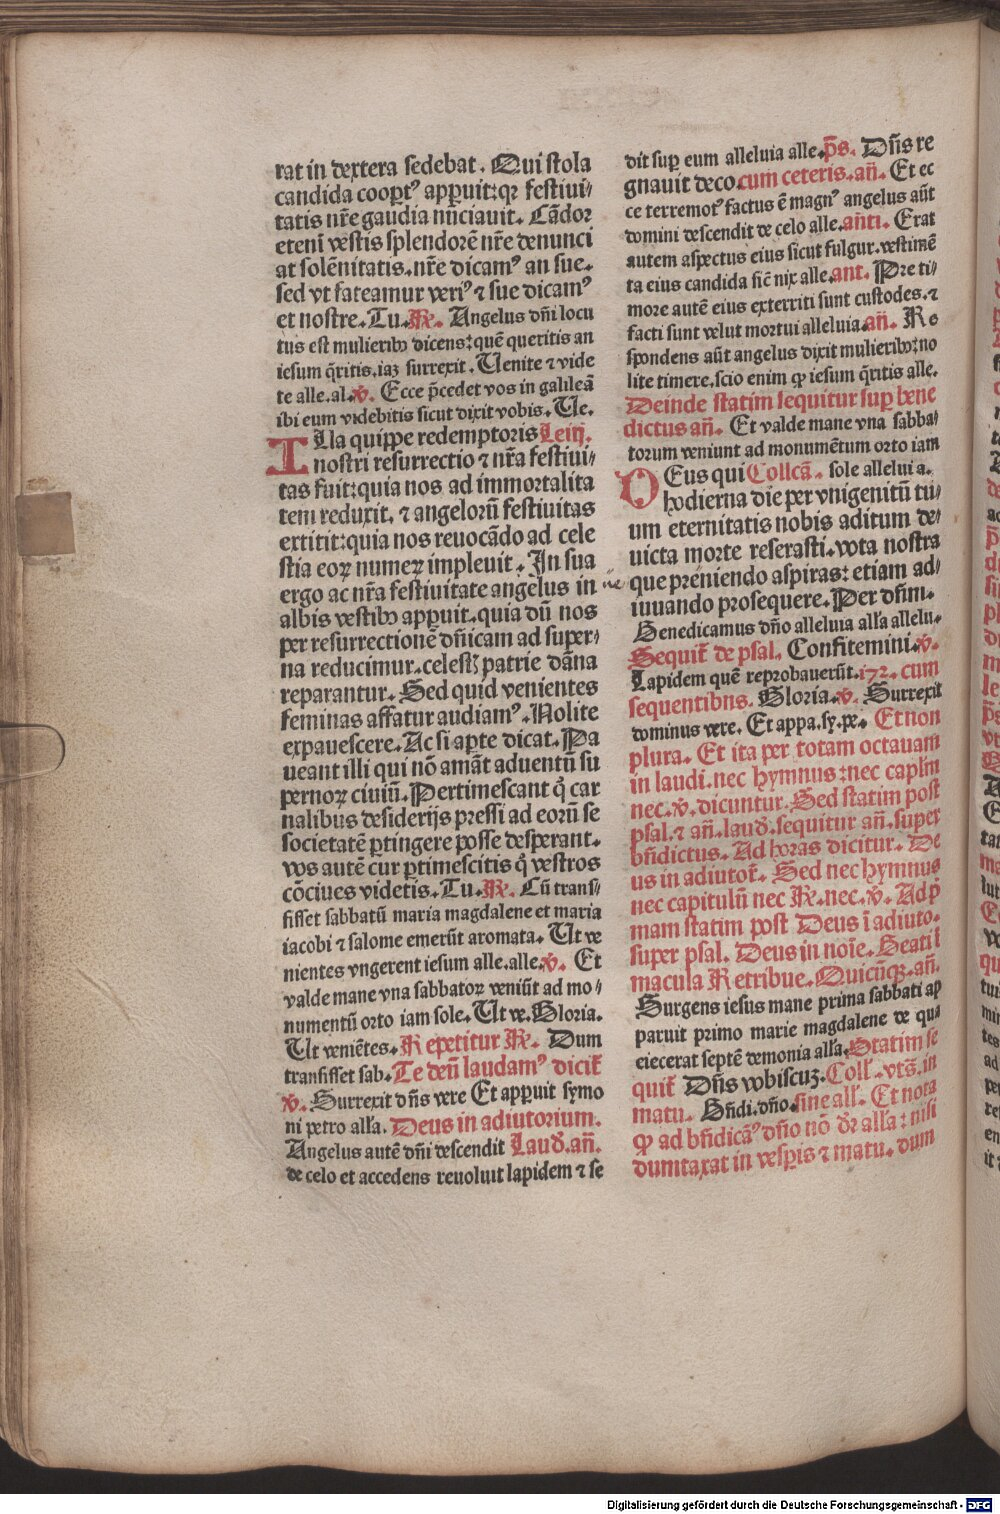 rat in dextera sedebat. Qui stola
candida coopt᷒ apparuit: qꝛ festiui⸗
tatis nr̄e gaudia nūciauit. Cādor
etenī vestis splendorē nr̄e denunci
at solēnitatis. nr̄e dicam᷒ an sue.
sed vt fateamur veri᷒ ⁊ sue dicam᷒
et nostre. Tu. ℟. Angelus dn̄i locu
tus est mulieribꝰ dicens: quē queritis an
iesum q̄ritis. iaꝫ surrexit. Uenite ⁊ vide
te alle. al. ℣. Ecce p̄cedet vos in galileā
ibi eum videbitis sicut dixit vobis. Ue.
Illa quippe redemptoris Lc̄iij.
nostri resurrectio ⁊ nr̄a festiui⸗
tas fuit: quia nos ad immortalita
tem reduxit. ⁊ angelorū festiuitas
extitit: quia nos reuocādo ad cele
stia eoꝝ numeꝝ impleuit. In sua
ergo ac nr̄a festiuitate angelus in
albis vestibꝰ apparuit. quia dū nos
per resurrectionē dn̄icam ad super⸗
na reducimur. celest̄ patrie dāna
reparantur. Sed quid venientes
feminas affatur audiam᷒. Nolite
expauescere. Ac si apte dicat. Pa
ueant illi qui nō amāt aduentū su
pernoꝝ ciuiū. Pertimescant qͥ car
nalibus desiderijs pressi ad eorū se
societatē ꝑtingere posse desperant.
vos autē cur ꝑtimescitis qͥ vestros
cōciues videtis. Tu. ℟. Cū trans⸗
sisset sabbatū maria magdalene et maria
iacobi ⁊ salome emerūt aromata. Ut ve
nientes vngerent iesum alle. alle. ℣. Et
valde mane vna sabbatoꝝ veniūt ad mo⸗
numentū orto iam sole. Ut ve. Gloria.
Ut veniētes. Repetitur ℟. Dum
transisset sab. Te deū laudam᷒ dicit᷑
℣. Surrexit dn̄s vere Et apparuit symo
ni petro all'a. Deus in adiutorium.
Angelus autē dn̄i descendit Laud̄. an̄.
de celo et accedens reuoluit lapidem ⁊ se
dit suꝑ eum alleluia alle. p̄s. Dn̄s re
gnauit deco. cum ceteris. an̄. Et ec
ce terremot᷒ factus ē magn᷒ angelus aūt
domini descendit de celo alle. an̄ti. Erat
autem aspectus eius sicut fulgur. vestimē
ta eius candida sic̄ nix alle. ant. Pre ti⸗
more autē eius exterriti sunt custodes. ⁊
facti sunt velut mortui alleluia. an̄. Re
spondens aūt angelus dixit mulieribꝰ: no
lite timere. scio enim ꝙ iesum q̄ritis alle.
Deinde statim sequitur suꝑ bene
dictus an̄. Et valde mane vna sabba⸗
torum veniunt ad monumētum orto iam
Deus qui Collcā. sole alleluia.
hodierna die per vnigenitū tu⸗
um eternitatis nobis aditum de⸗
uicta morte reserasti. vota nostra
que preueniendo aspiras: etiam ad⸗
iuuando prosequere. Per dn̄m.
Benedicamus dn̄o alleluia all'a allelu.
Sequit᷑ de psal. Confitemini. ℣.
Lapidem quē reprobauerūt. 172. cum
sequentibns. Gloria. ℣. Surrexit
dominus vere. Et appa. sy. pe. Et non
plura. Et ita per totam octauam
in laudi. nec hymnus: nec capl̄m
nec. ℣. dicuntur. Sed statim post
psal. ⁊ an̄. laud̄. sequitur an̄. super
bn̄dictus. Ad horas dicitur. De
us in adiutor̄. Sed nec hymnus
nec capitulū nec ℟. nec. ℣. Ad p̄
mam statim post Deus ī adiuto.
super psal. Deus in noīe. Beati ī
macula Retribue. Quicūqꝫ. an̄.
Surgens iesus mane prima sabbati ap
paruit primo marie magdalene de qu⸗
eiecerat septē demonia all'a. Statim se
quit᷑ Dn̄s vobiscuꝫ. Coll'. vts̄. in
matu. Bn̄di. dn̄o. sine all'. Et nota
ꝙ ad bn̄dicā᷒ dn̄o nō dr̄ all'a: nisi
dumtaxat in vesꝑis ⁊ matu. dum
Digitalisierung gefördert durch die Deutsche Forschungsgemeinschaft - DFG